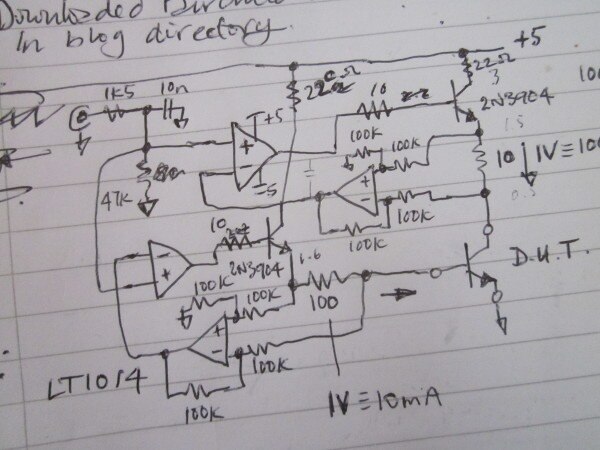 Downloaded
In blog directory.
+5
22Ω
1K5
10n
22Ω
10
2N3904
100
+5
-5
100K
100K
10
1V≡100
47K
100K
100K
10
2N3904
1.6
D.U.T.
100K
100K
100
100K
LT1014
100K
1V≡10mA